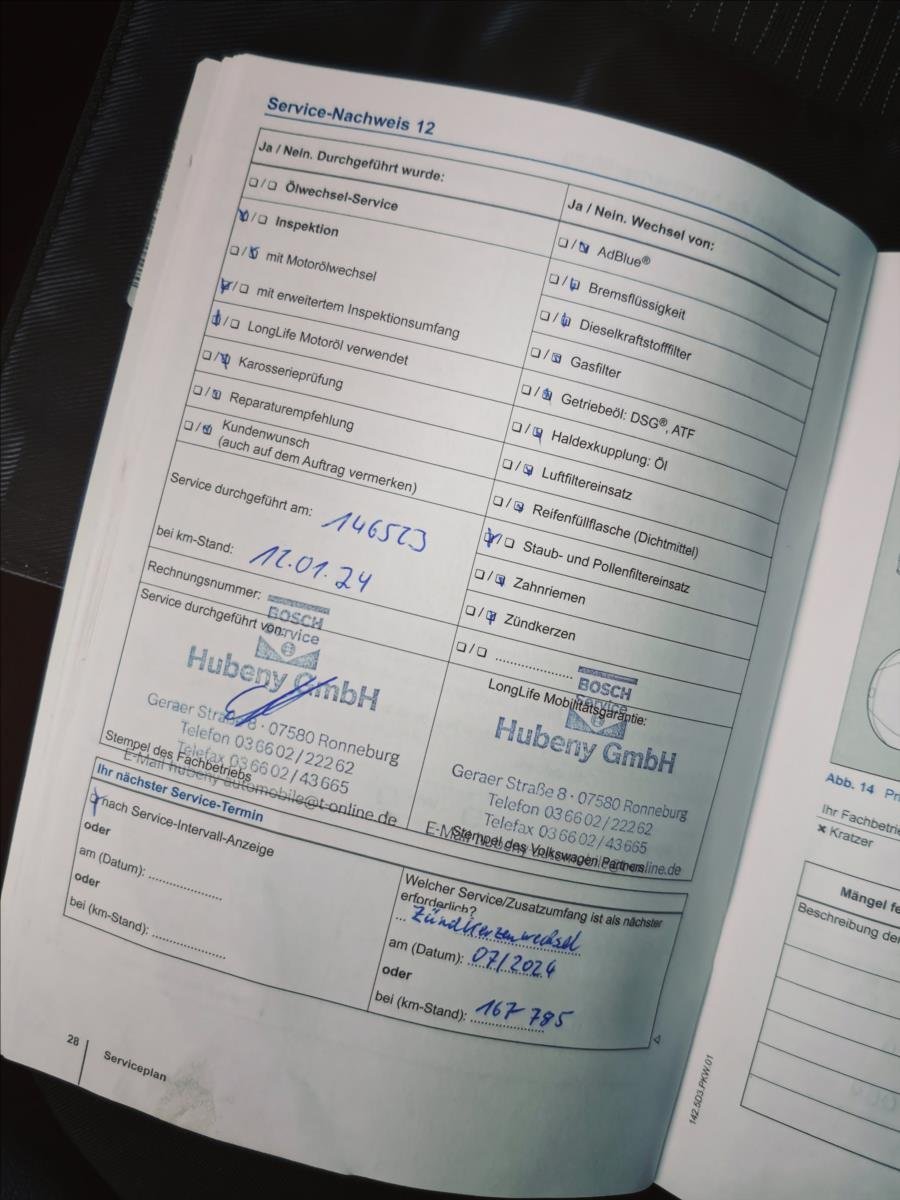 Service-Nachweis 12
Ja / Nein. Durchgeführt wurde:
❏ / ❏ Ölwechsel-Service
❏ / ❏ Inspektion
❏ / ❏ mit Motorölwechsel
❏ / ❏ mit erweitertem Inspektionsumfang
❏ / ❏ LongLife Motoröl verwendet
❏ / ❏ Karosserieprüfung
❏ / ❏ Reparaturempfehlung
❏ / ❏ Kundenwunsch
(auch auf dem Auftrag vermerken)
Service durchgeführt am: 146523
bei km-Stand: 12.01.24
Rechnungsnummer:
Service durchgeführt von:
BOSCH
Service
Hubeny GmbH
Geraer Straße 8 · 07580 Ronneburg
Telefon 03 66 02 / 222 62
Telefax 03 66 02 / 43 665
E-Mail hubeny automobile@t-online.de
Stempel des Fachbetriebs
Ja / Nein. Wechsel von:
❏ / ❏ AdBlue®
❏ / ❏ Bremsflüssigkeit
❏ / ❏ Dieselkraftstofffilter
❏ / ❏ Gasfilter
❏ / ❏ Getriebeöl: DSG®, ATF
❏ / ❏ Haldexkupplung: Öl
❏ / ❏ Luftfiltereinsatz
❏ / ❏ Reifenfüllflasche (Dichtmittel)
❏ / ❏ Staub- und Pollenfiltereinsatz
❏ / ❏ Zahnriemen
❏ / ❏ Zündkerzen
❏ / ❏ ..................
LongLife Mobilitätsgarantie:
BOSCH
Service
Hubeny GmbH
Geraer Straße 8 · 07580 Ronneburg
Telefon 03 66 02 / 222 62
Telefax 03 66 02 / 43 665
E-Mail hubeny automobile@t-online.de
Stempel des Volkswagen Partners
Ihr nächster Service-Termin
❏ nach Service-Intervall-Anzeige
oder
am (Datum): ..................
oder
bei (km-Stand): ..................
Welcher Service/Zusatzumfang ist als nächster
erforderlich?
Zündkerzenwechsel
am (Datum): 07/2024
oder
bei (km-Stand): 167 785
28
Serviceplan
142.5D3.PKW.01
Abb. 14
Ihr Fachbetrie
× Kratzer
Mängel fe
Beschreibung der